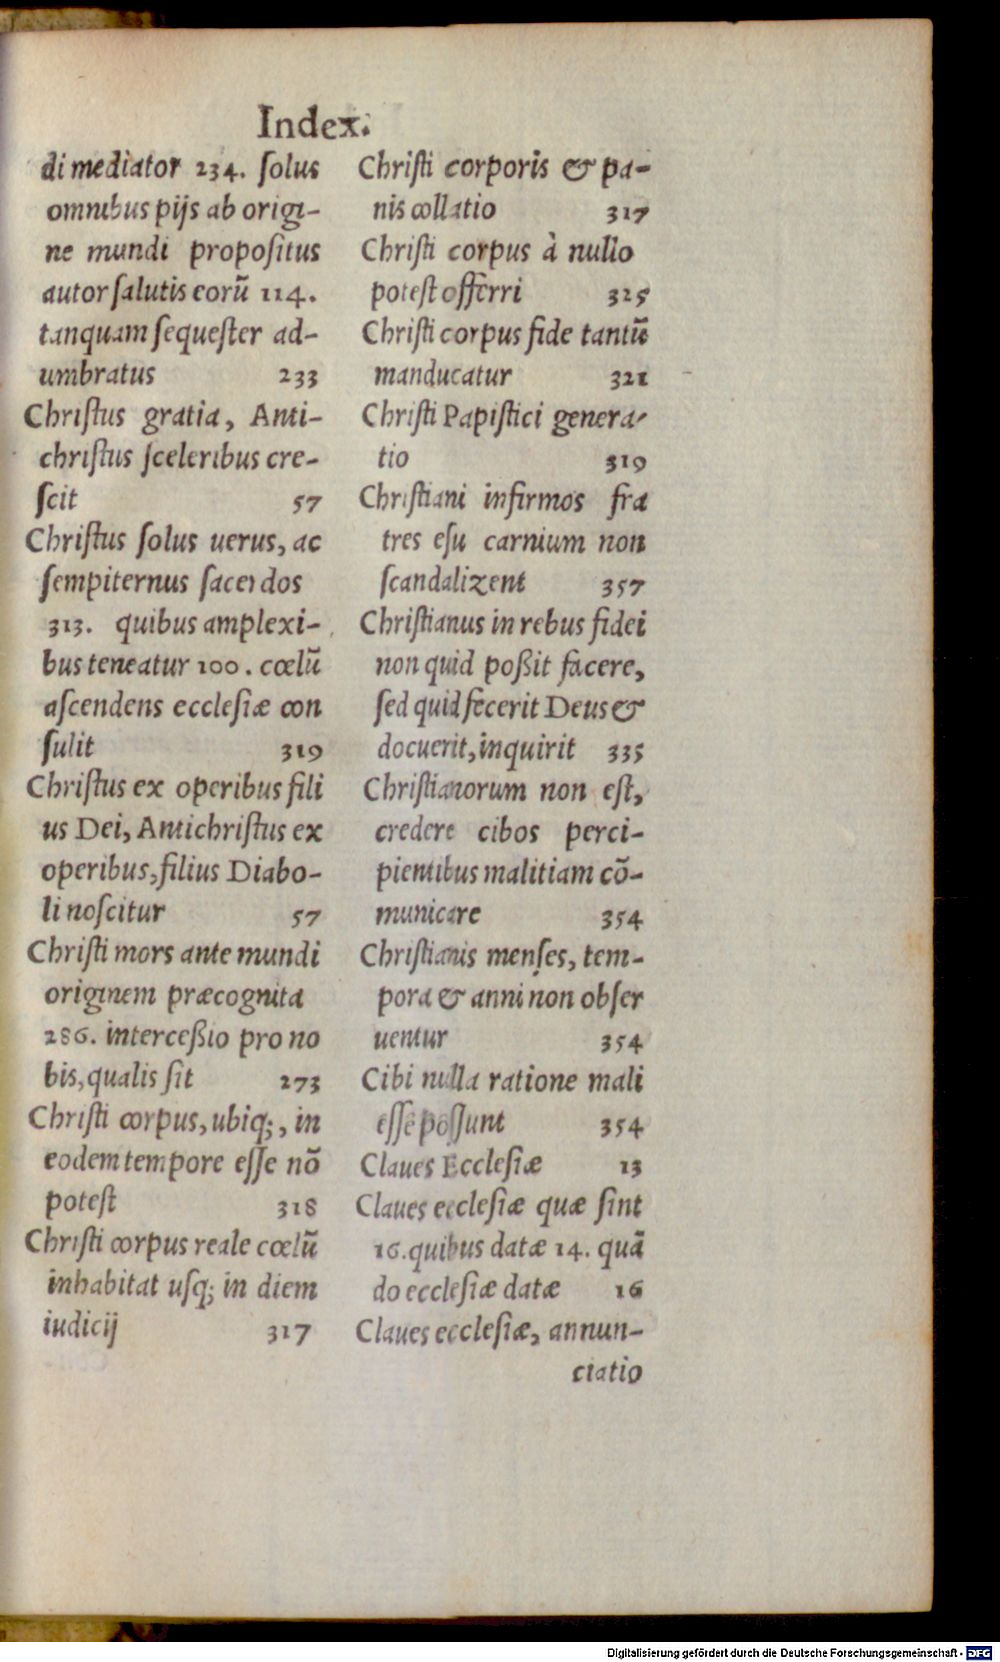 Index.
di mediator 234. ſolus
omnibus pijs ab origi-
ne mundi propoſitus
autor ſalutis eorũ 114.
tanquam ſequeſter ad-
umbratus 233
Chriſtus gratia, Anti-
chriſtus ſceleribus cre-
ſcit 57
Chriſtus ſolus uerus, ac
ſempiternus ſacerdos
313. quibus amplexi-
bus teneatur 100. cœlũ
aſcendens eccleſiæ con
ſulit 319
Chriſtus ex operibus fili
us Dei, Antichriſtus ex
operibus, filius Diabo-
li noſcitur 57
Chriſti mors ante mundi
originem præcognita
286. interceßio pro no
bis, qualis ſit 273
Chriſti corpus, ubiq;, in
eodem tempore eſſe nõ
poteſt 318
Chriſti corpus reale cœlũ
inhabitat uſq; in diem
iudicij 317
Chriſti corporis & pa-
nis collatio 317
Chriſti corpus à nullo
poteſt offerri 325
Chriſti corpus fide tantũ
manducatur 321
Chriſti Papiſtici genera-
tio 319
Chriſtiani infirmos fra
tres eſu carnium non
ſcandalizent 357
Chriſtianus in rebus fidei
non quid poßit facere,
ſed quid fecerit Deus &
docuerit, inquirit 335
Chriſtianorum non eſt,
credere cibos perci-
pientibus malitiam cõ-
municare 354
Chriſtianis menſes, tem-
pora & anni non obſer
uentur 354
Cibi nulla ratione mali
eſſe poſſunt 354
Claues Eccleſiæ 13
Claues eccleſiæ quæ ſint
16. quibus datæ 14. quã
do eccleſiæ datæ 16
Claues eccleſiæ, annun-
ciatio
Digitalisierung gefördert durch die Deutsche Forschungsgemeinschaft - DFG